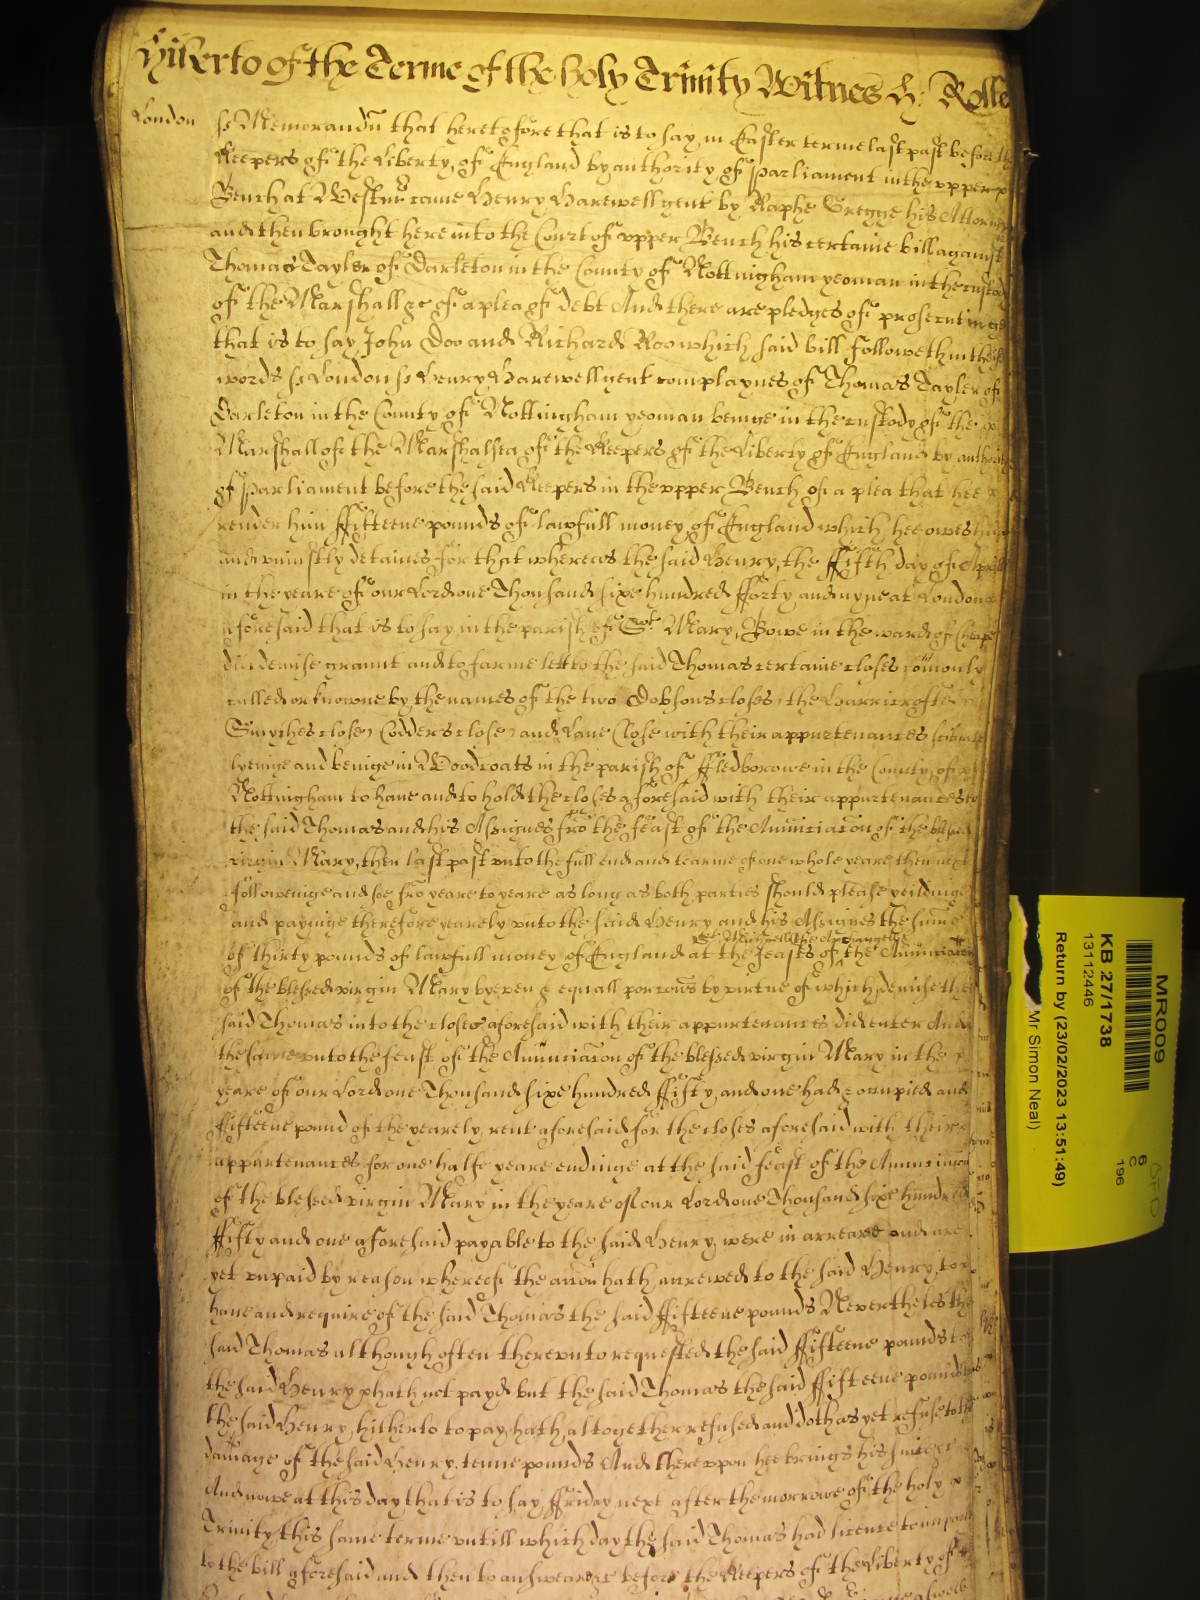 Hitherto of the Terme of the holy Trinity Witnes H: Rolle
London
ss Memorandũ that heretofore that is to say in Easter terme last past before the
Keepers of the Liberty of England by authority of Parliament in the upper
Bench at Westmr came Henry Harewell gent by Raphe Gregge his Attorney
and then brought here into the Court of upper Bench his certaine bill against
Thomas Tayler of Darleton in the County of Nottingham yeoman in the custody
of the Marshall &c of a plea of debt And there are pledges of prosecutinge
that is to say John Doo and Richard Roo which said bill followeth in these
words ss London ss Henry Harewell gent complaynes of Thomas Tayler of
Darleton in the County of Nottingham yeoman beinge in the custody of the
Marshall of the Marshalsea of the Keepers of the Liberty of England by authority
of Parliament before the said Keepers in the upper Bench of a plea that hee
render him ffifteene pounds of lawfull money of England which hee owes him
and uniustly detaines for that whereas the said Henry the ffifth day of Aprill
in the yeare of our Lord one Thousand sixe hundred fforty and nyne at London
aforesaid that is to say in the parish of Sct Mary Bowe in the ward of Cheape
did demise graunt and to farme lett to the said Thomas certaine closes cõmonly
called or knowne by the names of the two Dobsons closes, the Harricrofte
Smythes close, Codders close, and Lane Close with their appurtenances scituate
lyeinge and beinge in Woodcoats in the parish of ffledborowe in the County of
Nottingham to have and to hold the closes aforesaid with their appurtenances to
the said Thomas and his Assignes frõ the feast of the Anũciacõn of the blessed
virgin Mary then last past unto the full end and tearme of one whole yeare then next
followeinge and soe frõ yeare to yeare as long as both parties should please yeildinge
and payinge therefore yearely unto the said Henry and his Assignes the sũme
St Michaell the Archangell &
of thirty pounds of lawfull money of England at the feasts of the Anũnciacõn
of the blessed virgin Mary by even & equall porcõns by virtue of which demise the
said Thomas into the closes aforesaid with their appurtenances did enter And
the same unto the feast of the Anũnciacõn of the blessed virgin Mary in the
yeare of our Lord one Thousand sixe hundred ffifty and one had & occupied and
ffifteene pound of the yearely rent aforesaid for the closes aforesaid with their
appurtenances for one halfe yeare endinge at the said feast of the Anunciacõn
of the blessed virgin Mary in the yeare of our Lord one Thousand sixe hundred
ffifty and one aforesaid payable to the said Henry were in arreare and are
yet unpaid by reason whereof the accõn hath accrewed to the said Henry to
have and require of the said Thomas the said ffifteene pounds Nevertheles the
said Thomas although often thereunto requested the said ffifteene pounds to
the said Henry hath not payd but the said Thomas the said ffifteene pounds to
the said Henry hitherto to pay hath altogether refused and doth as yet refuse to the
damage of the said Henry tenne pounds And thereupon hee brings his suite &c
And nowe at this day that is to say ffriday next after the morrowe of the holy
Trinity this same terme untill which day the said Thomas had licence to imparle
to the bill aforesaid and then to answeare &c before the Keepers of the Liberty of
MR009
6
C
196
KB 27/1738
13112446
Return by (23/02/2023 13:51:49)
Mr Simon Neal)